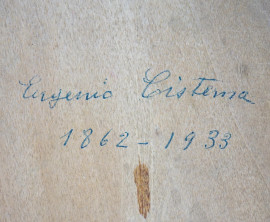 Eugenio Cisterna
1862-1933